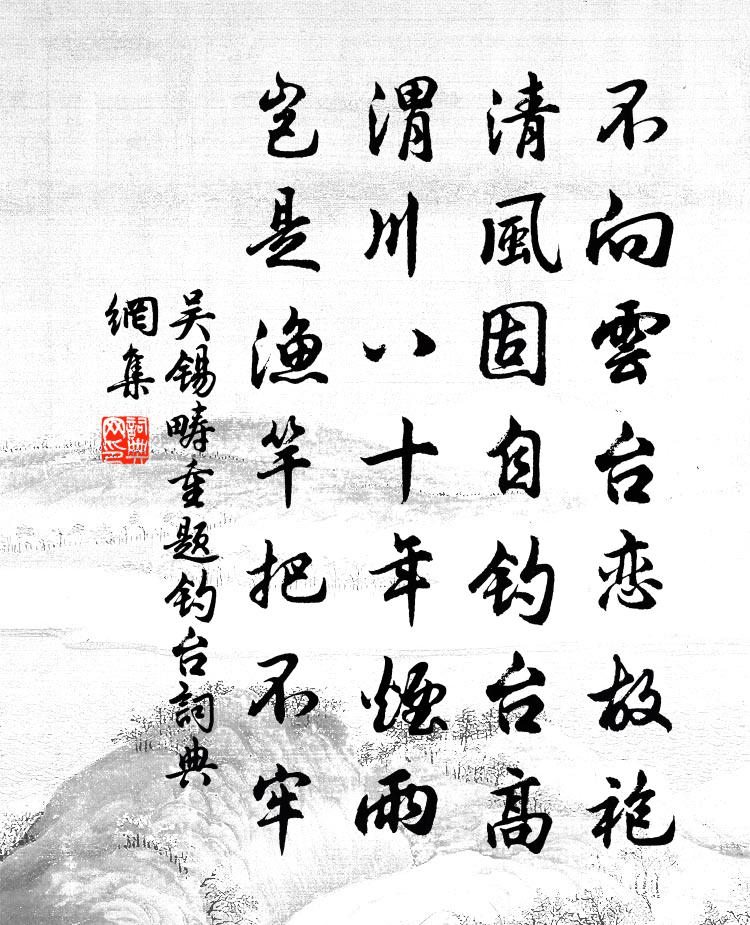 不向雲台恋故袍
清風固自钓台高
渭川八十年煙雨
岂是漁竿把不牢
吴锡畴重题钓台詞典
網集
詞典
网集